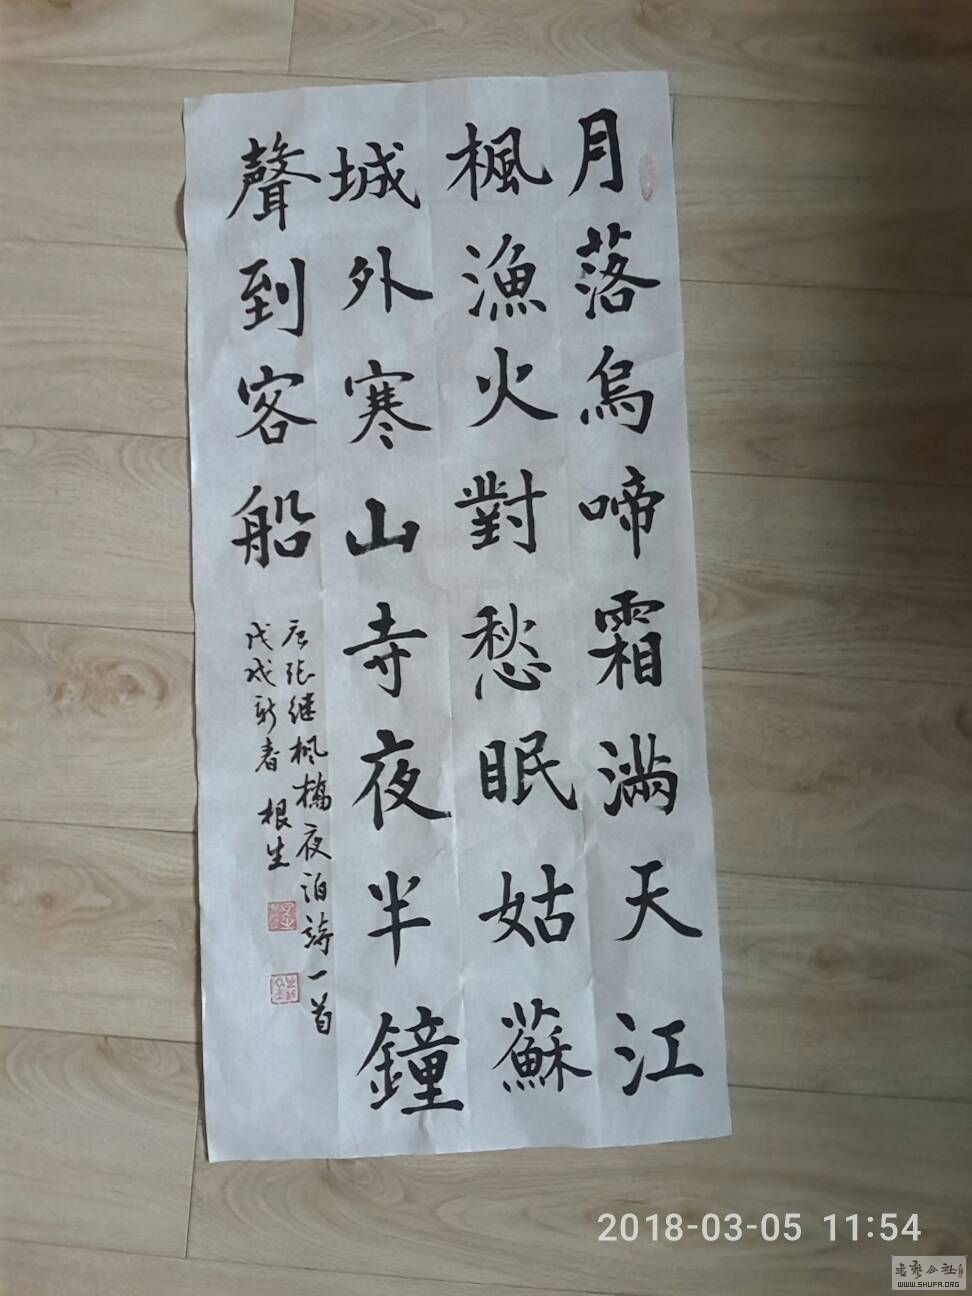 月落烏啼霜滿天江
楓漁火對愁眠姑蘇
城外寒山寺夜半鐘
聲到客船
唐张继楓橋夜泊詩一首
戊戌新春 根生
2018-03-05 11:54
书艺公社
WWW.SHUFA.ORG